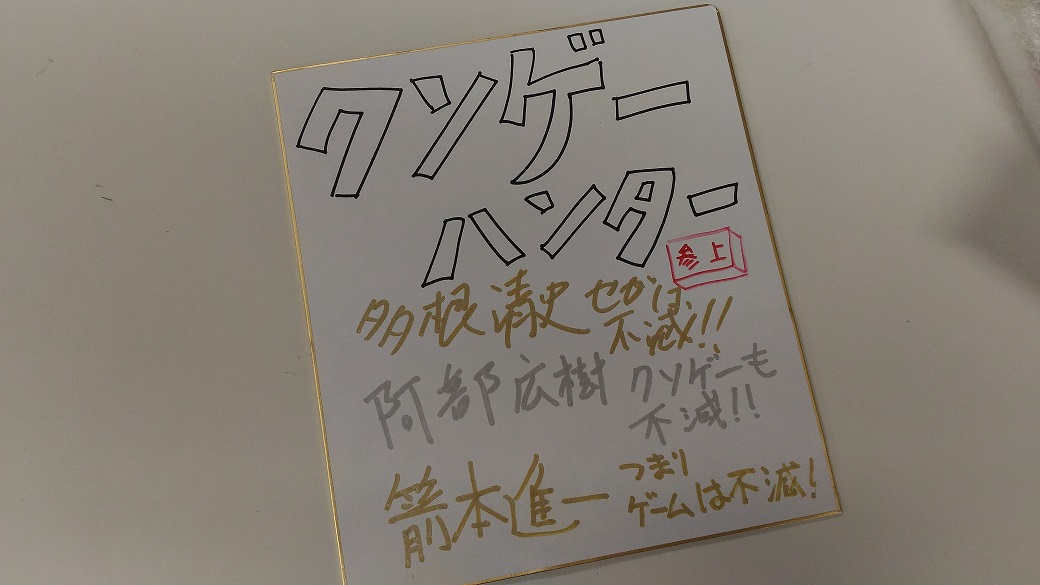 クソゲー
ハンター
参上
多根清史 セガは
不滅!!
阿部広樹 クソゲーも
不滅!!
箭本進一 つまり
ゲームは不滅!